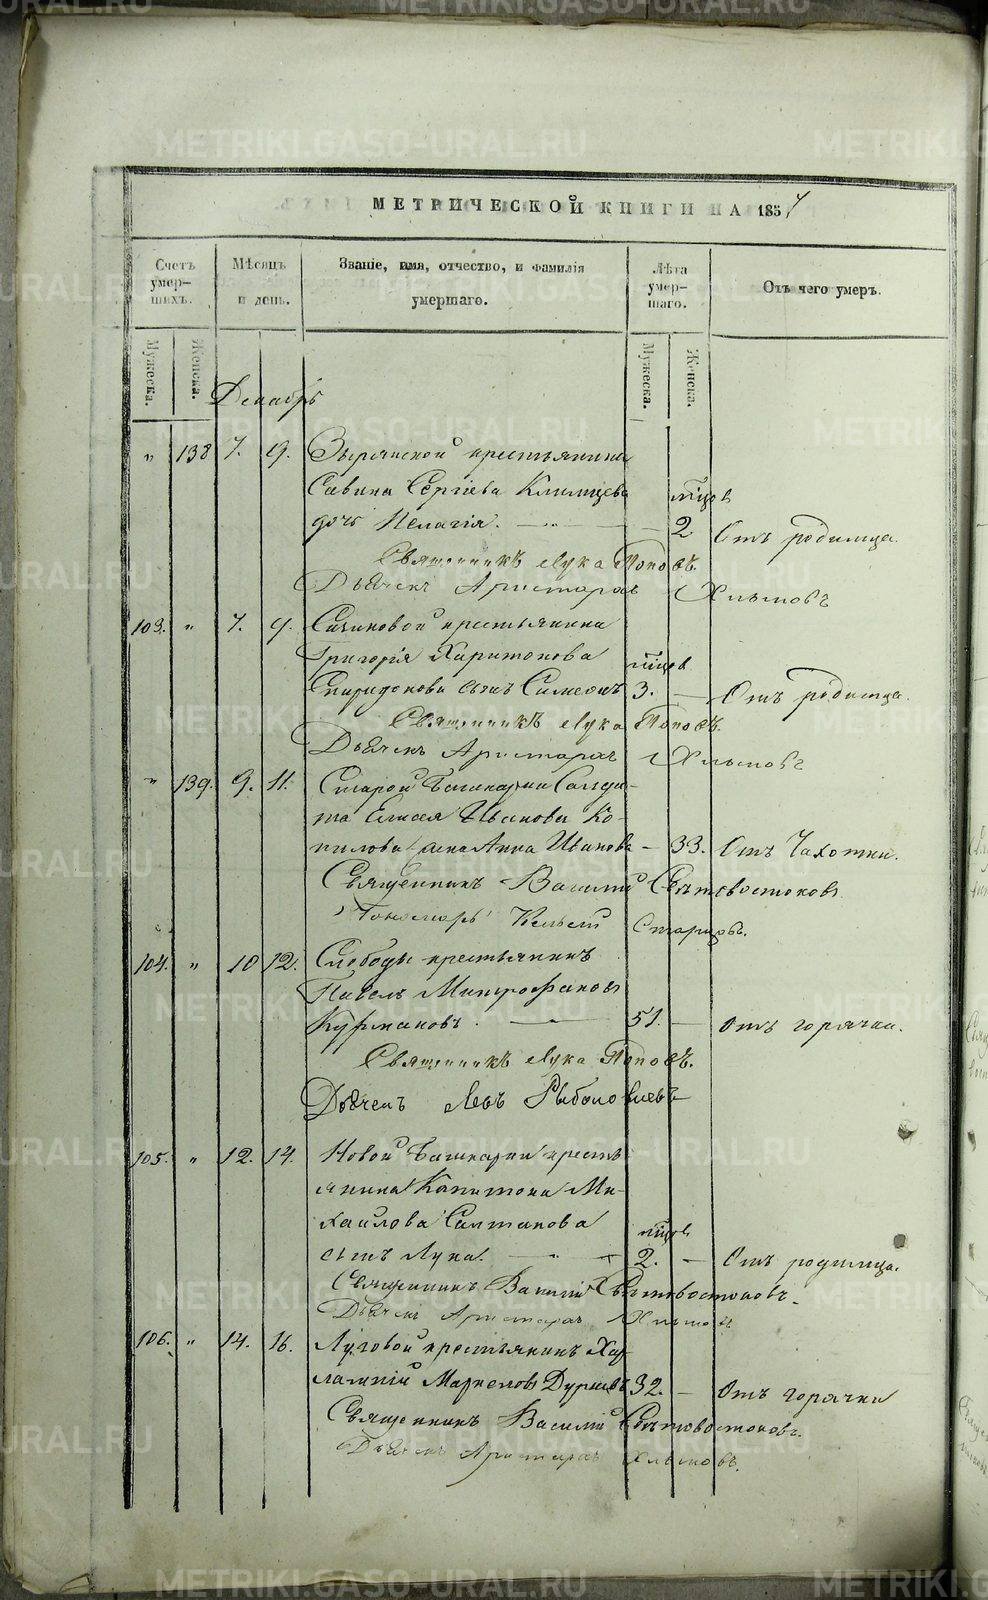 МЕТРИЧЕСКОЙ КНИГИ НА 1857
Счетъ умер-шихъ.
Мѣсяцъ и день.
Званіе, имя, отчество, и фамилія умершаго.
Лѣта умер-шаго.
Отъ чего умеръ.
Мужеска. Женска. Мужеска. Женска.
Декабрь
" 138 7. 9. Зырянской крестьянина
Савина Сергіева Климцева мѣсяцов
дочь Пелагія. — 2 Отъ родимца.
Священникъ Лука Поповъ.
Дьячекъ Аристархъ Хлыновъ
103. " 7. 9. крестьянина
Григорія Харитонова мѣсяцов
Спиридонова сынъ Симеонъ 3. — Отъ родимца.
Священникъ Лука Поповъ.
Дьячекъ Аристархъ Хлыновъ
" 139. 9. 11. Старой Башкарки Солда-
та Елисея Иванова Ко-
пылова жена Анна Иванова — 33. Отъ Чахотки.
Священникъ Василий Свѣтовостоковъ
Пономарь Старцовъ.
104. " 10 12. Слободы крестьянинъ
Павелъ Митрофановъ
Курмановъ. — 51. — Отъ горячки.
Священникъ Лука Поповъ.
Дьячекъ Левъ Рыболовлевъ
105. " 12. 14. Новой Башкарки кресть
янина Капитона Ми-
хайлова Салтанова мѣсяцов
сынъ Лука. — 2. — Отъ родимца.
Священникъ Василий Свѣтовостоковъ.
Дьячекъ Аристархъ Хлыновъ
106. " 14. 16. Луговой крестьянинъ Хар
лампий Маркеловъ 32. — Отъ горячки
Священникъ Василий Свѣтовостоковъ.
Дьячекъ Аристархъ Хлыновъ.
METRIKI.GASO-URAL.RU